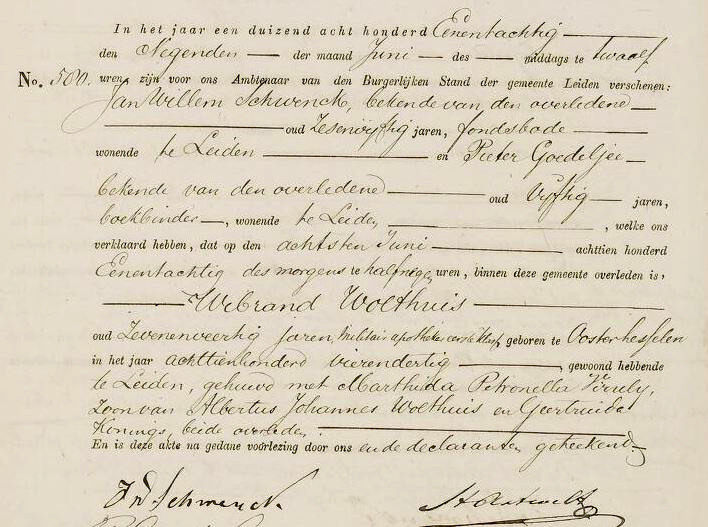 In het jaar een duizend acht honderd Eenentachtig
den Negenden der maand Juni des middags te twaalf
No. 580. uren, zijn voor ons Ambtenaar van den Burgerlijken Stand der gemeente Leiden verschenen:
Jan Willem Schwenck, bekende van den overledene
oud Zesenvijftig jaren, fondsbode
wonende te Leiden en Pieter Goedeljee
bekende van den overledene oud Vijftig jaren,
boekbinder, wonende te Leiden, welke ons
verklaard hebben, dat op den achtsten Juni achttien honderd
Eenentachtig des morgens te half negen uren, binnen deze gemeente overleden is,
Wibrand Wolthuis
oud Zevenenveertig Jaren, militair apotheker eerste klasse, geboren te Oosterhesselen
in het jaar achttienhonderd vierendertig, gewoond hebbende
te Leiden, gehuwd met Marthida Petronella Viruly,
Zoon van Albertus Johannes Wolthuis en Geertruida
Konings, beide overleden.
En is deze akte na gedane voorlezing door ons en de declaranten geteekend.
JW Schwenck.